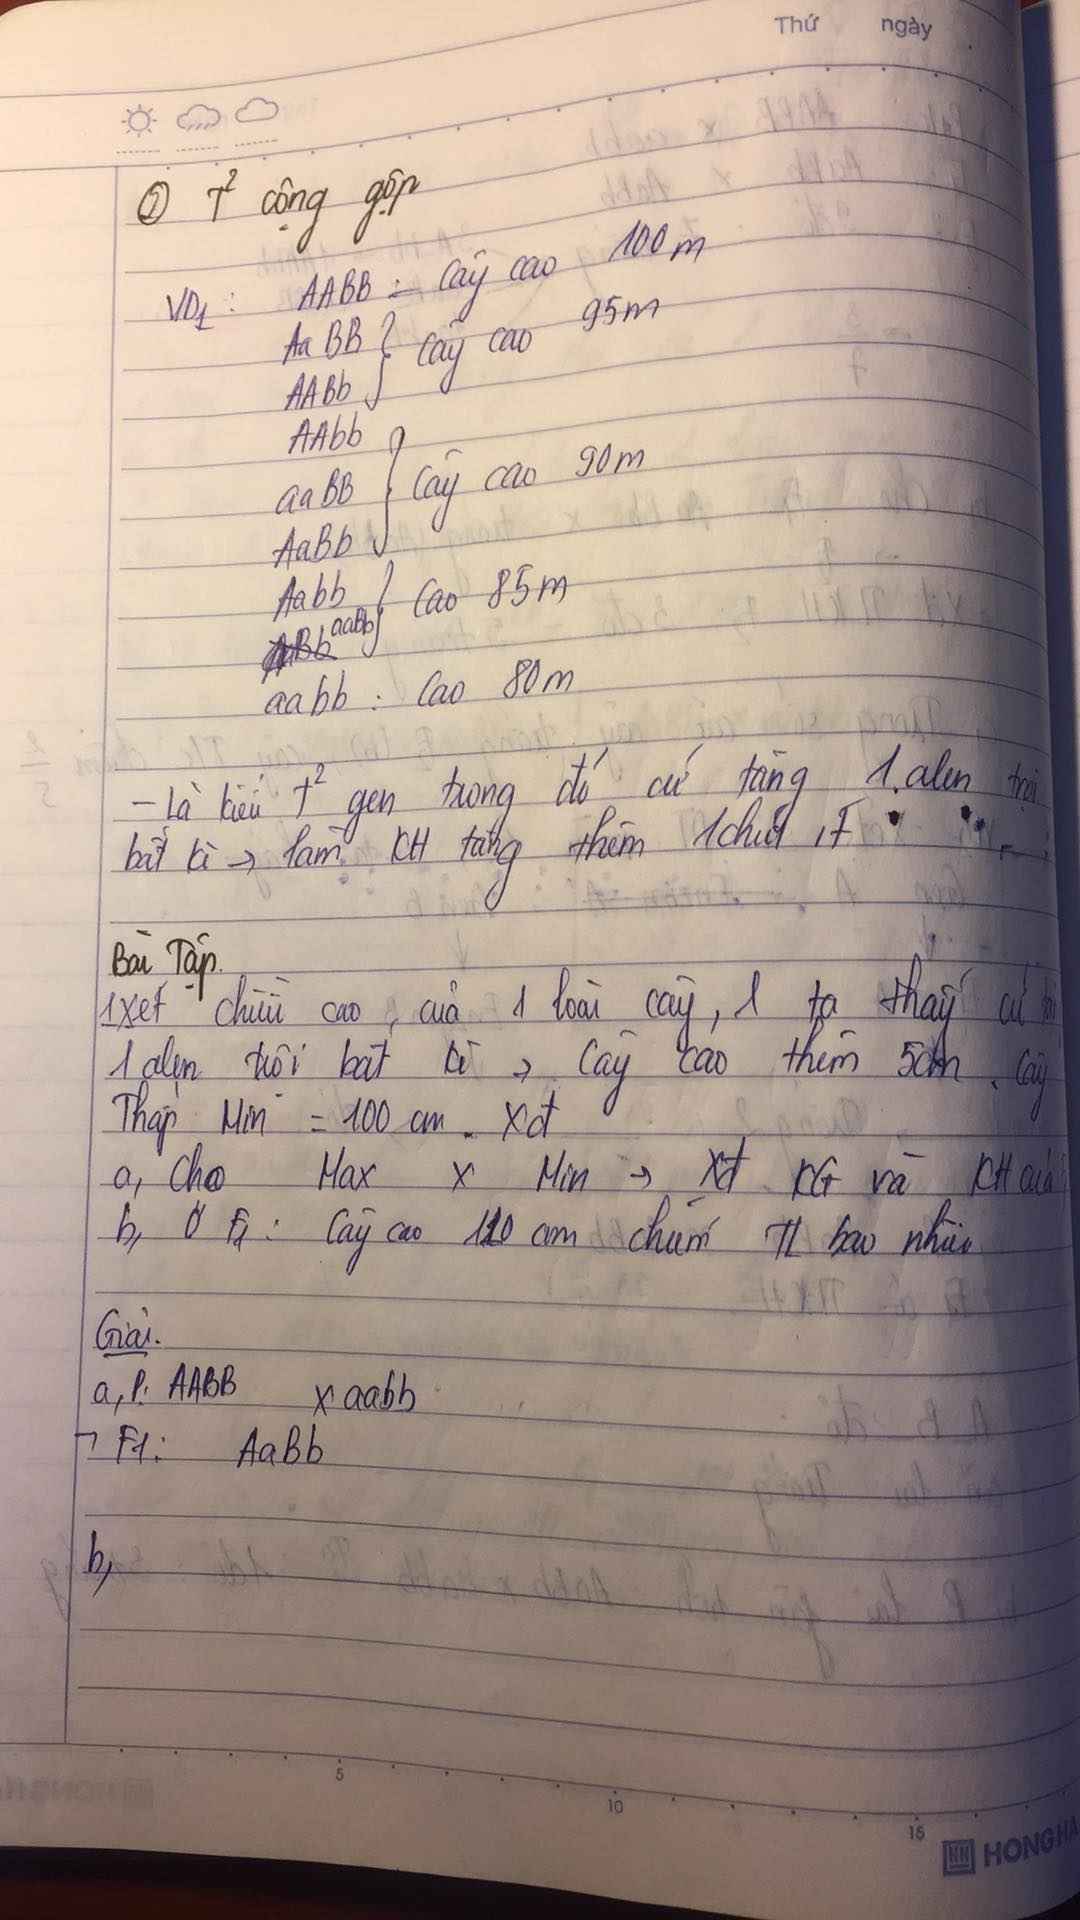 Thứ ngày
② T² cộng gộp
VD1: AABB = Cây cao 100m
AaBB } Cây cao 95m
AABb
AAbb
aaBB } Cây cao 90m
AaBb
Aabb } Cao 85m
aaBb
aabb : Cao 80m
- Là kiểu T² gen trong đó cứ tăng 1 alen trội
bất kì → làm KH tăng thêm 1 chút ít
Bài Tập.
1 Xét chiều cao của 1 loài cây, ta thấy cứ
1 alen trội bất kì → Cây cao thêm 5cm. Cây
Thấp Min = 100 cm. Xđ
a, Cho Max x Min → Xđ KG và KH của
b, Ở F2: Cây cao 110 cm chiếm TL bao nhiêu
Giải.
a, P: AABB x aabb
→ F1: AaBb
b,
5
10
15
HH HONG HA